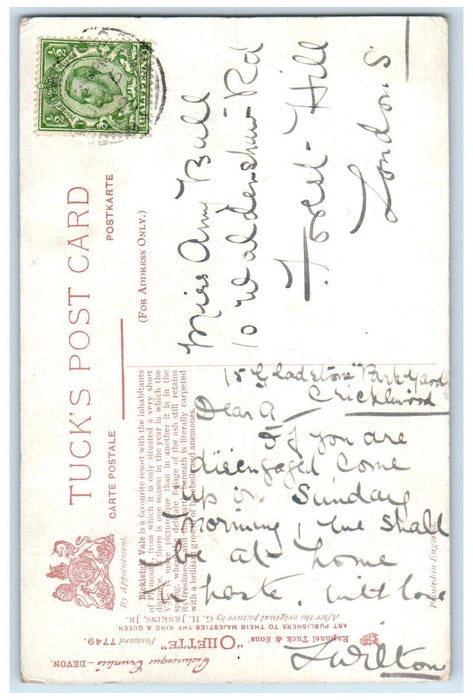 TUCK'S POST CARD
CARTE POSTALE
POSTKARTE
(FOR ADDRESS ONLY.)
By Appointment.
Bickleigh Vale is a favourite resort with the inhabitants
of Plymouth, from which it is only situated a very short
distance. If there is one season in the year in which the
Vale is more picturesque than in another it is in the
spring, when the delicate foliage of the ash still retains
its freshness and the earth beneath is literally carpeted
with a brilliant growth of bluebells and anemones.
Miss Amy Bull
10 Waldenshaw Rd
Forest-Hill
London. S
15 Gladstone Park Gardens
Cricklewood
Dear A
If you are
disengaged come
up on Sunday
morning, we shall
be at home
In haste. with love
L Wilton
Picturesque Counties - DEVON.
"OILETTE" Postcard 7749.
Raphael Tuck & Sons'
ART PUBLISHERS TO THEIR MAJESTIES THE KING & QUEEN.
After the original picture by H. G. H. JENKINS, JR.
Printed in England